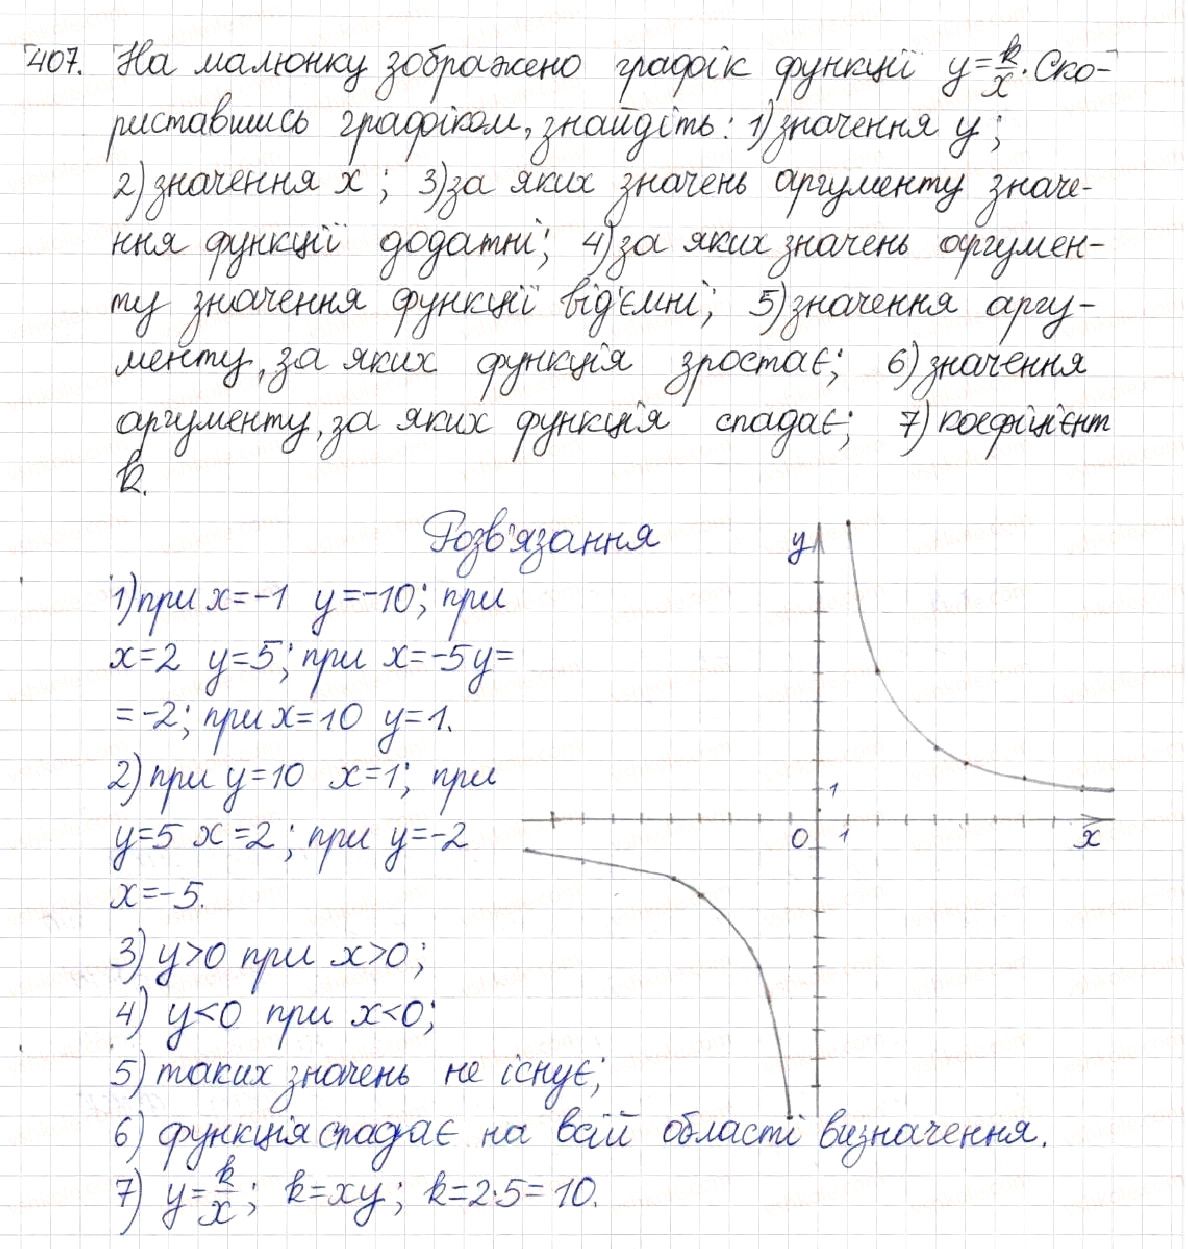 407. На малюнку зображено графік функції y=k/x. Ско-
риставшись графіком, знайдіть: 1) значення y;
2) значення x; 3) за яких значень аргументу значе-
ння функції додатні; 4) за яких значень аргумен-
ту значення функції від'ємні; 5) значення аргу-
менту, за яких функція зростає; 6) значення
аргументу, за яких функція спадає; 7) коефіцієнт
k.
Розв'язання
1) при x=-1 y=-10; при
x=2 y=5; при x=-5 y=
=-2; при x=10 y=1.
2) при y=10 x=1; при
y=5 x=2; при y=-2
x=-5.
3) y>0 при x>0;
4) y<0 при x<0;
5) таких значень не існує;
6) функція спадає на всій області визначення.
7) y=k/x; k=xy; k=2·5=10.
y
1
0 1 x